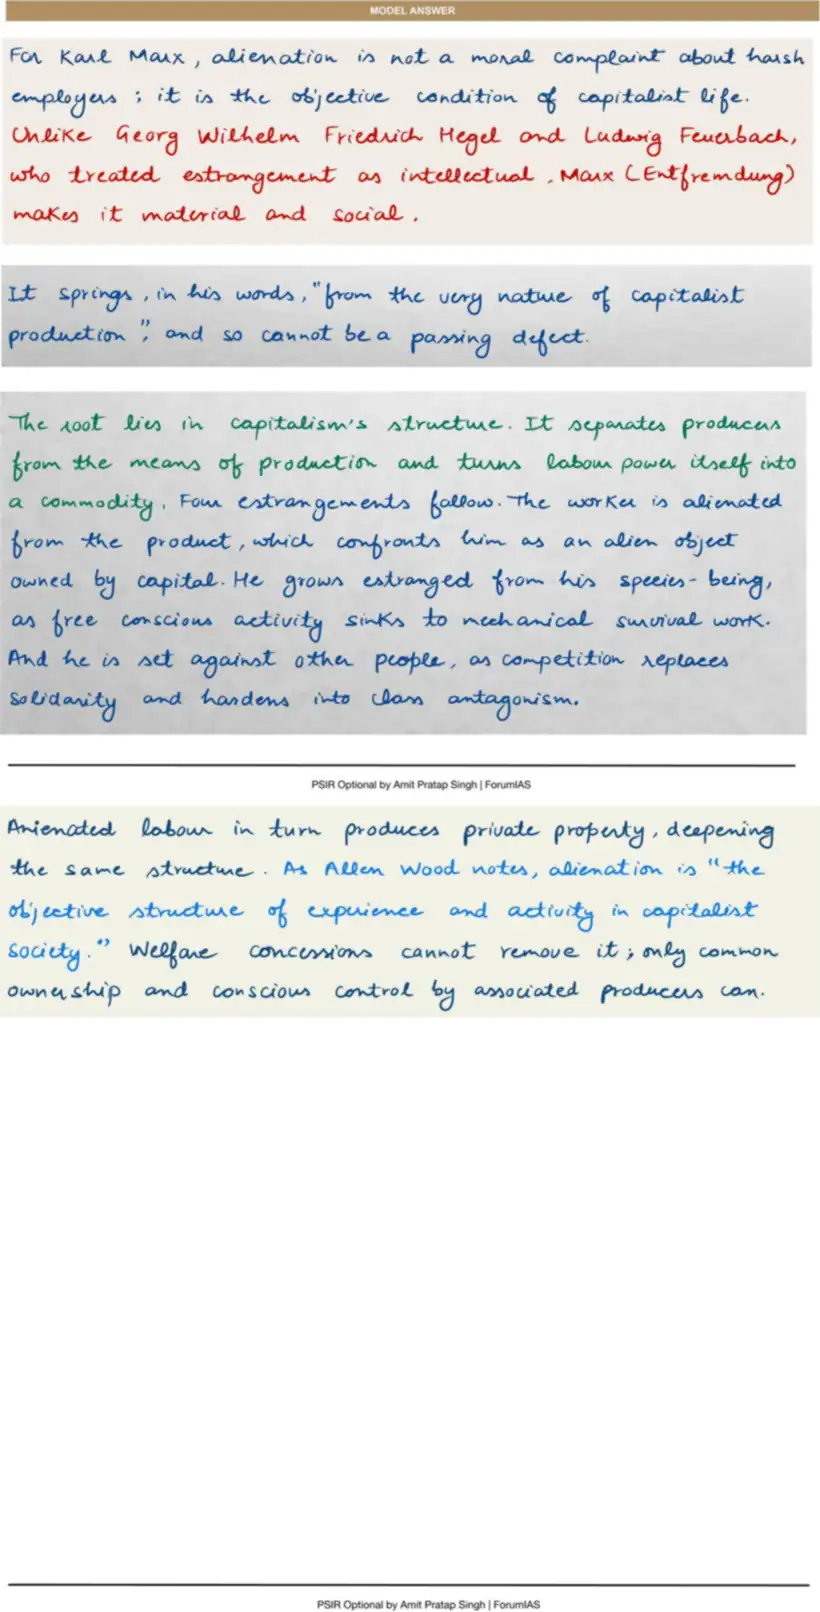 MODEL ANSWER
For Karl Marx, alienation is not a moral complaint about harsh
employers; it is the objective condition of capitalist life.
Unlike Georg Wilhelm Friedrich Hegel and Ludwig Feuerbach,
who treated estrangement as intellectual, Marx (Entfremdung)
makes it material and social.
It springs, in his words, "from the very nature of capitalist
production", and so cannot be a passing defect.
The root lies in capitalism's structure. It separates producers
from the means of production and turns labour power itself into
a commodity. Four estrangements follow. The worker is alienated
from the product, which confronts him as an alien object
owned by capital. He grows estranged from his species-being,
as free conscious activity sinks to mechanical survival work.
And he is set against other people, as competition replaces
solidarity and hardens into class antagonism.
PSIR Optional by Amit Pratap Singh | ForumIAS
Anienated labour in turn produces private property, deepening
the same structure. As Allen Wood notes, alienation is "the
objective structure of experience and activity in capitalist
society." Welfare concessions cannot remove it; only common
ownership and conscious control by associated producers can.
PSIR Optional by Amit Pratap Singh | ForumIAS